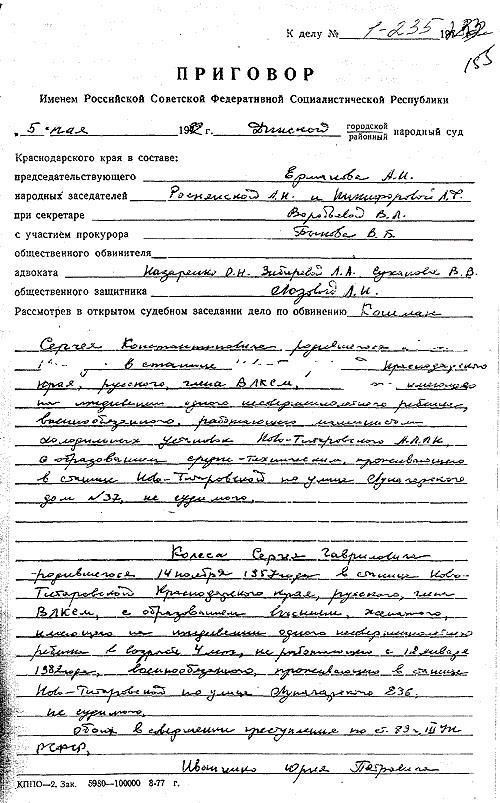 К делу № 1-235 1982
155
ПРИГОВОР
Именем Российской Советской Федеративной Социалистической Республики
„5“ мая 1982 г. Динской городской районный народный суд
Краснодарского края в составе:
председательствующего Ермакова А.И.
народных заседателей А.Н. и Никифоровой Л.Ф.
при секретаре Воробьевой В.Л.
с участием прокурора Быкова В.Б.
общественного обвинителя
адвоката Назаренко О.Н. Л.А. Суханова В.В.
общественного защитника Лозовой Л.И.
Рассмотрев в открытом судебном заседании дело по обвинению Кошман
Сергея Константиновича родившегося
в станице Краснодарского
края, русского, члена ВЛКСМ, имеющего
на иждивении одного несовершеннолетнего ребенка,
военнообязанного, работающего машинистом
холодильных установок Ново-Титаровского
с образованием средне-техническим, проживающего
в станице Ново-Титаровской по улице Луначарского
дом №37, не судимого,
Колеса Сергея Гавриловича
родившегося 14 ноября 1957 года в станице Ново-
Титаровской Краснодарского края, русского, член
ВЛКСМ, с образованием высшим, женатого,
имеющего на иждивении одного несовершеннолетнего
ребенка в возрасте 4 мес, не работающего с 18 января
1982 года, военнообязанного, проживающего в станице
Ново-Титаровской по улице Луначарского 236,
не судимого,
обоих в совершении преступления по ст. 89 ч. III УК
РСФСР,
Иванченко Юрия Петровича
КППО—2. Зак. 5980—100000 8-77 г.